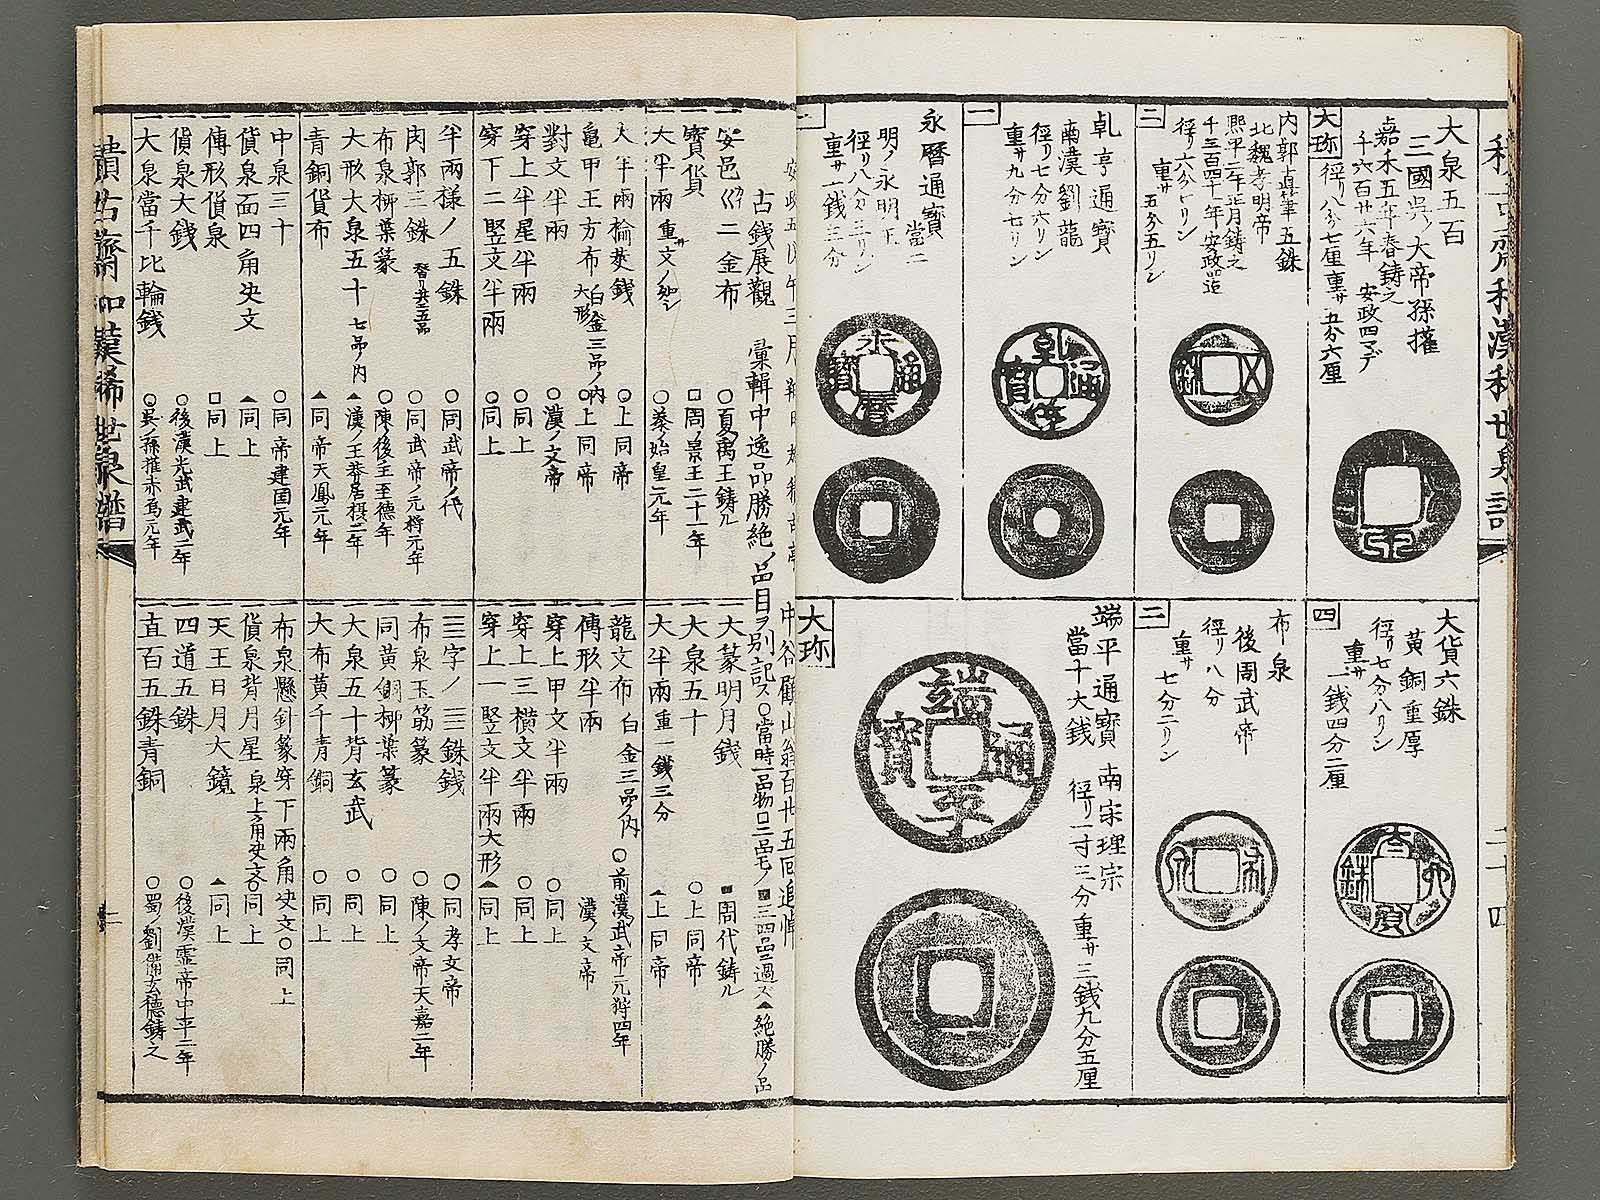 大泉五百
三國呉ノ大帝孫權
嘉禾五年春鋳之
千六百廿六年 安政四マデ
大珎
径リ八分七厘重サ五分六厘
内郭真筆五銖
北魏孝明帝
熙平二年正月鋳之
千三百四十一年安政迠
径リ六分一リン
重サ五分五リン
二
乹亨通寳
南漢劉龍
径リ七分六リン
重サ九分七リン
一
永暦通寳 當二
明ノ永明王
径リ八分三リン
重サ一銭三分
大貨六銖
黄銅重厚
径リ七分八リン
重サ一銭四分二厘
四
布泉
後周武帝
径リ八分
重サ七分二リン
二
端平通寳 南宋理宗
當十大銭 径リ一寸三分重サ三銭九分五厘
大珎
二十四
古銭展觀 彙輯中逸品勝絶ノ品目ヲ別記ス○當時一品物口二品モノ■三四品ニ過ス▲絶勝ノ品
一安邑巛二金布 ○夏禹王鋳ル
一寳貨 口周ノ景王二十一年
一大半兩 重サ文ノ如シ ○秦ノ始皇元年
一大篆明月銭 ■周代鋳ル
一大泉五十 ○上同帝
一大半兩重一銭三分 ▲上同帝
一大半兩檎莢銭 ○上同帝
一亀甲王方布 白金三品ノ内 大形 ○上同帝
一對文半兩 ○漢ノ文帝
一穿上半星半兩 ○同上
一穿下二竪文半兩 ○同上
一龍文布 白金三品ノ内 ○前漢武帝元狩四年
一傳形半兩 漢ノ文帝
一穿上甲文半兩 ○同上
一穿上三横文半兩 ○同上
一穿上一竪文半兩大形 ▲同上
一半兩様ノ五銖 ○同武帝ノ代
一肉郭三銖 ○同武帝ノ元狩元年
一布泉柳葉篆 ○陳後主至德年
一大形大泉五十 七品ノ内 ▲漢ノ王莽居摂二年
一青銅貨布 ▲同帝天鳳元年
一三字ノ三銖銭 ○同孝文帝
一布泉玉筋篆 ○陳ノ文帝天嘉二年
一同黄銅柳葉篆 ○同上
一大泉五十背玄武 ○同上
一大布黄千青銅 ○同上
一中泉三十 ○同帝建国元年
一貨泉面四角决文 ▲同上
一傳形貨泉 口同上
一貨泉大銭 ○後漢光武建武二年
一大泉當千比輪銭 ○呉ノ孫權赤烏元年
一布泉懸針篆穿下兩角决文 ○同上
一貨泉背月星 泉上二角决文 ○同上
一天王日月大鏡 ▲同上
一四道五銖 ○後漢ノ霊帝中平二年
一直百五銖青銅 ○蜀ノ劉備玄德鋳之